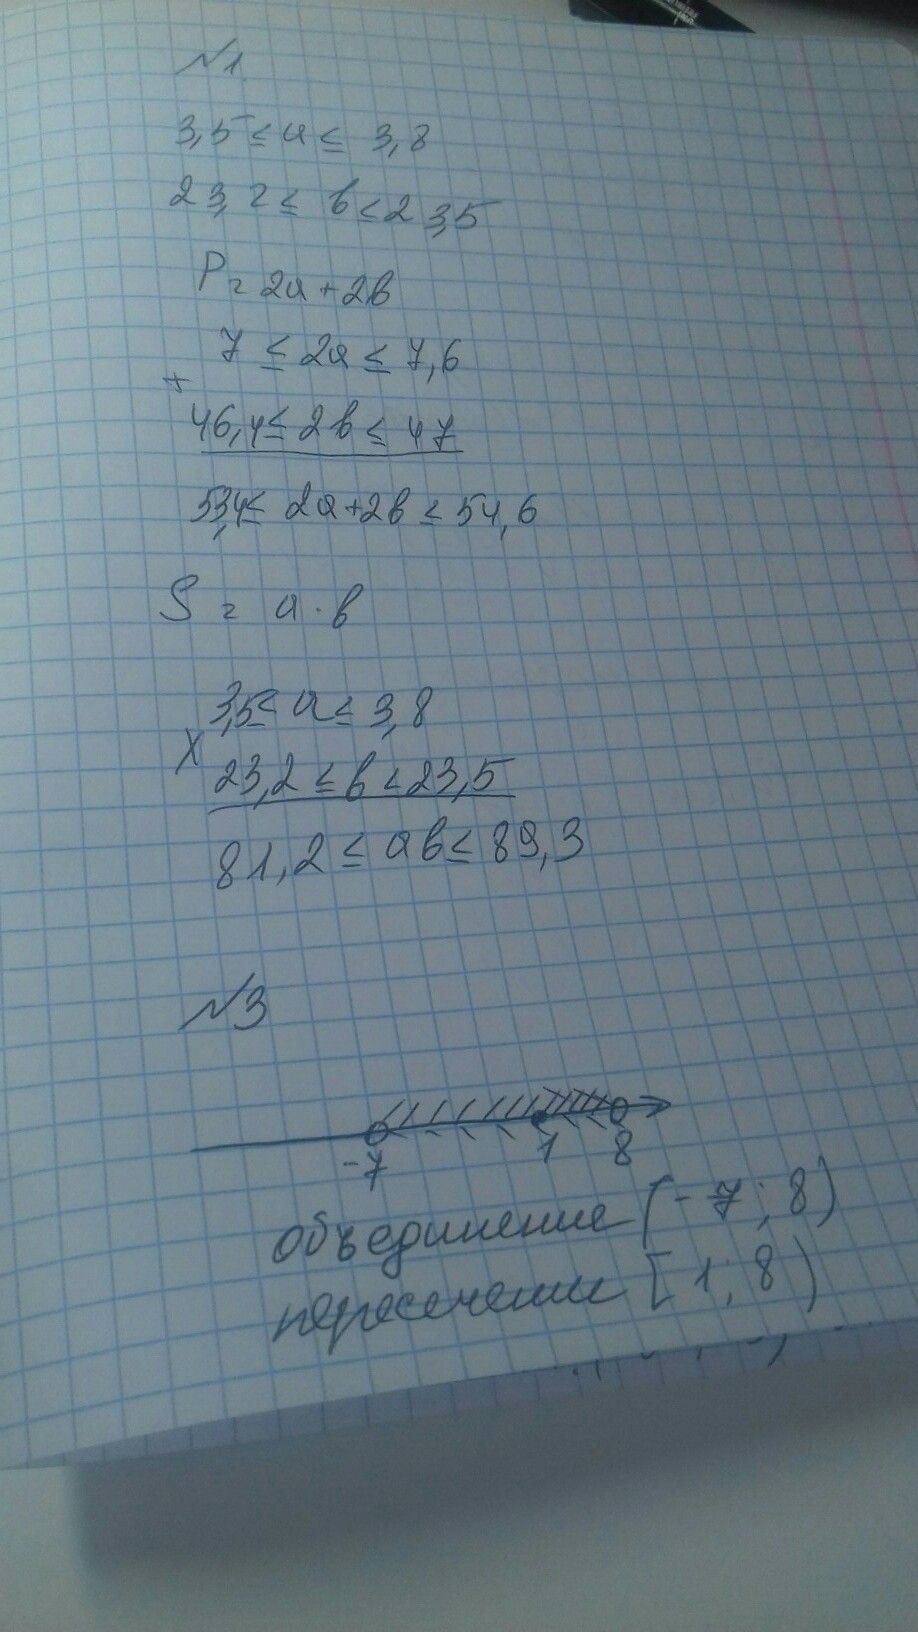 №1
3,5 ≤ a ≤ 3,8
23,2 ≤ b ≤ 23,5
P = 2a + 2b
7 ≤ 2a ≤ 7,6
+
46,4 ≤ 2b ≤ 47
53,4 ≤ 2a + 2b ≤ 54,6
S = a · b
3,5 ≤ a ≤ 3,8
X
23,2 ≤ b < 23,5
81,2 ≤ ab ≤ 89,3
№3
-7 1 8
объединение (-7; 8)
пересечение [1; 8)